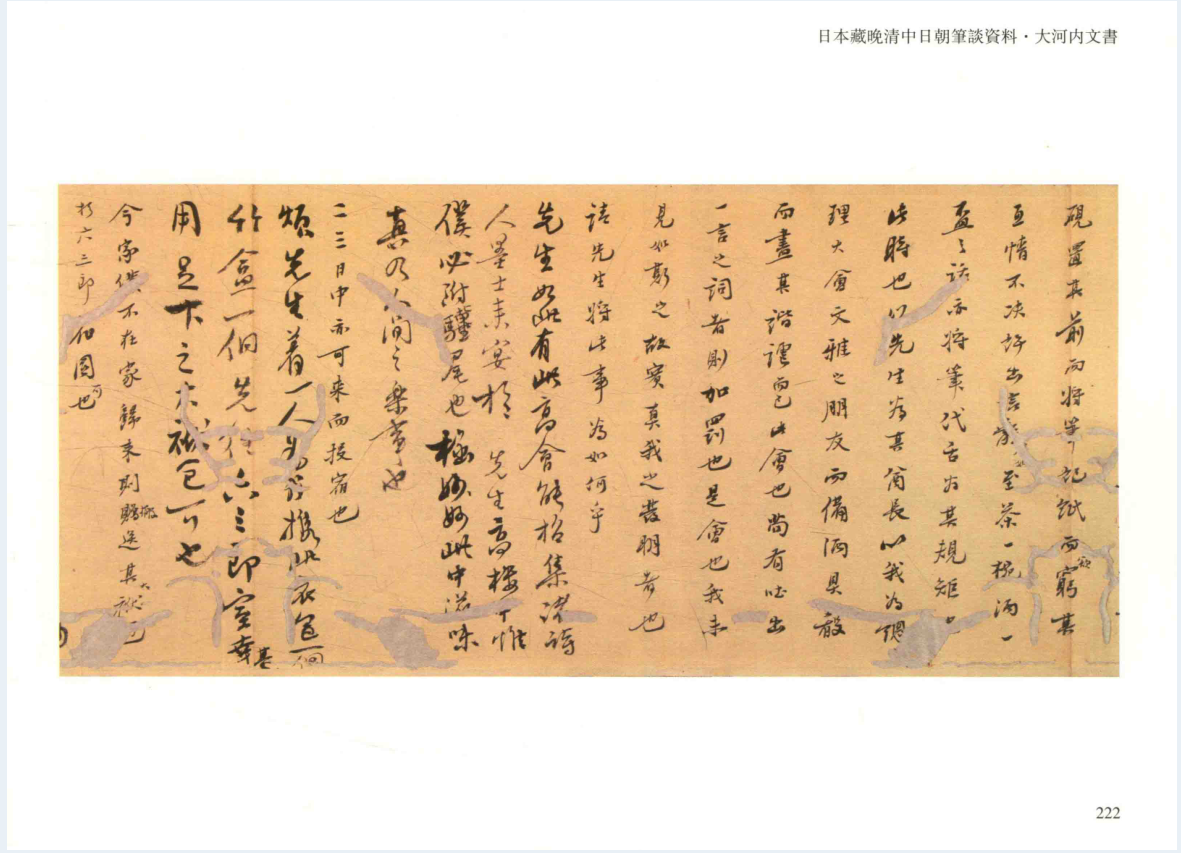 日本藏晚清中日朝筆談資料・大河内文書
硯置其前而將筆記試而窮其
互情不决許出言 至茶一椀酒一
盃之話亦將筆代舌为其規矩
此時也以先生为其酋長以我为
理大會文雅之朋友而備酒具殽
而盡其諧謔而已此會也苟有吐出
一言之詞者則加罰也是會也我未
見如斯之故實真我之發明者也
請先生將此事為如何乎
先生如此有此高會能招集諸詩
人墨士来宴於先生高樓下惟
僕必附驥尾也極妙妙此中滋味
真乃人間之樂事也
二三日中亦可来而投宿也
煩先生着一人为我携此衣包一個
竹盒一個先 六三郎室幸甚
用足下之大袱包可也
今家僕不在家歸来則 送其大袱包
於六三郎 也
222